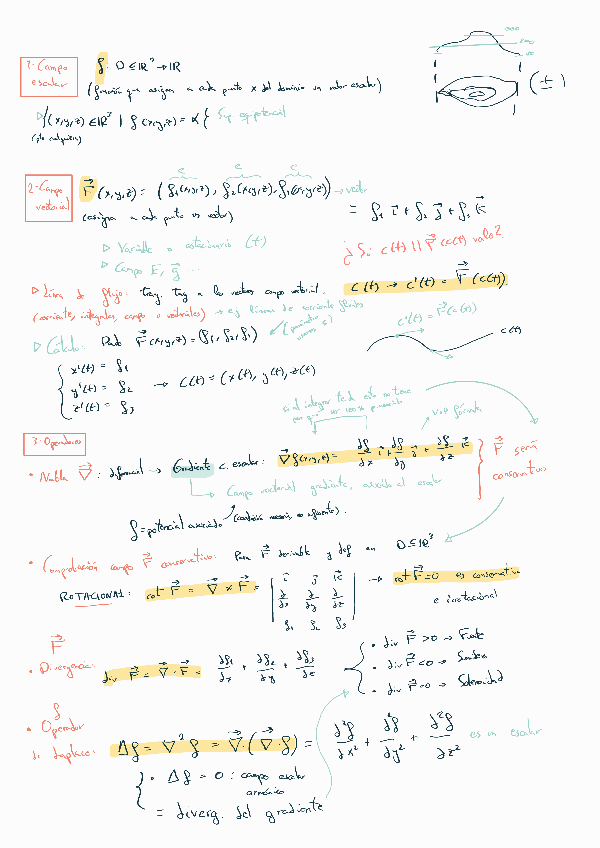 1. Campo escalar
f: D ⊆ IR³ → IR
(función que asigna a cada punto x del dominio un valor escalar)
▷ {(x,y,z) ∈ IR³ | f(x,y,z) = α} Sup equipotencial
(±)
2. Campo vectorial
F⃗(x,y,z) = (f₁(x,y,z), f₂(x,y,z), f₃(x,y,z)) → vector
(asigna a cada punto un vector)
= f₁ i⃗ + f₂ j⃗ + f₃ k⃗
▷ Variable o estacionario (t)
▷ Campo E⃗, g⃗ ...
¿Si c(t) || F⃗(c(t)) valo?
▷ Línea de flujo: tray. tag a los vectores campo vectorial.
c(t) → c'(t) = F⃗(c(t))
(corrientes, integrales, campo o vectoriales) → ej líneas de corriente fluidos
▷ Cálculo: Dado F⃗(x,y,z) = (f₁, f₂, f₃)
c'(t) = F⃗(c(t))
c(t)
x'(t) = f₁
y'(t) = f₂
z'(t) = f₃
→ c(t) = (x(t), y(t), z(t))
3. Operadores
• Nabla ∇⃗: diferencial → Gradiente c. escalar: ∇⃗f(x,y,z) = ∂f/∂x i⃗ + ∂f/∂y j⃗ + ∂f/∂z k⃗
F⃗ será conservativo
↳ Campo vectorial gradiente, asociado al escalar
f = potencial asociado (condición necesaria, no suficiente).
• Comprobación campo F⃗ conservativo: Para F⃗ derivable y def en D ⊆ IR³
ROTACIONAL: rot F⃗ = ∇⃗ × F⃗ = | i⃗ j⃗ k⃗ |
| ∂/∂x ∂/∂y ∂/∂z |
| f₁ f₂ f₃ |
→ rot F⃗ = 0 es conservativo
e irrotacional
F⃗
• Divergencia: div F⃗ = ∇⃗ · F⃗ = ∂f₁/∂x + ∂f₂/∂y + ∂f₃/∂z
• div F⃗ > 0 → Fuente
• div F⃗ < 0 → Sumidero
• div F⃗ = 0 → Solenoidal
f
• Operador de Laplace: Δf = ∇²f = ∇⃗ · (∇⃗ · f) = ∂²f/∂x² + ∂²f/∂y² + ∂²f/∂z² es un escalar
• Δf = 0 : campo escalar armónico
= diverg. del gradiente